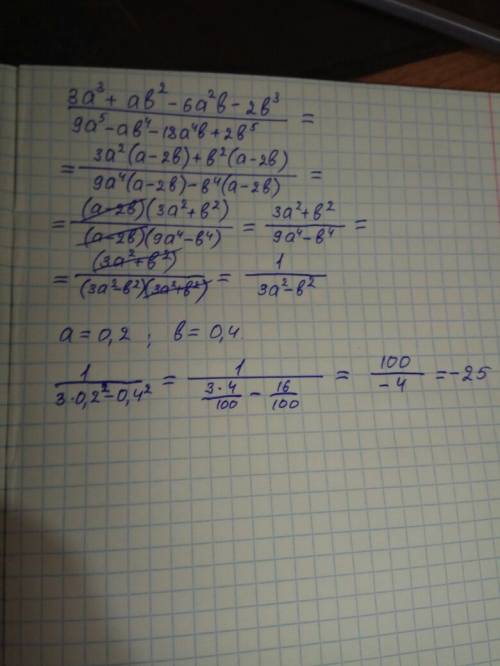 (3a³ + aв² - 6a²в - 2в³)/(9a⁵ - aв⁴ - 18a⁴в + 2в⁵) =
= (3a²(a-2в) + в²(a-2в))/(9a⁴(a-2в) - в⁴(a-2в)) =
= ((a-2в)(3a²+в²))/((a-2в)(9a⁴-в⁴)) = (3a²+в²)/(9a⁴-в⁴) =
= (3a²+в²)/((3a²-в²)(3a²+в²)) = 1/(3a²-в²)
a = 0,2 ; в = 0,4
1/(3·0,2²-0,4²) = 1/(3·4/100 - 16/100) = 100/-4 = -25